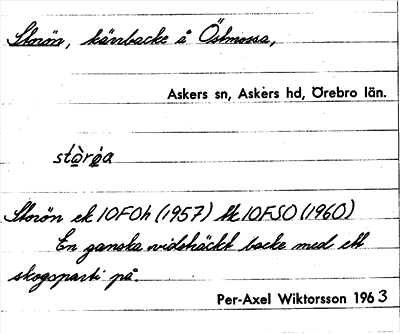 Storön, kärrbacke å Östmossa,
Askers sn, Askers hd, Örebro län.
stὸrǫ̀a
Storön ek 10F0h (1957) tk 10FSO (1960)
En ganska vidsträckt backe med ett
skogsparti på.
Per-Axel Wiktorsson 1963